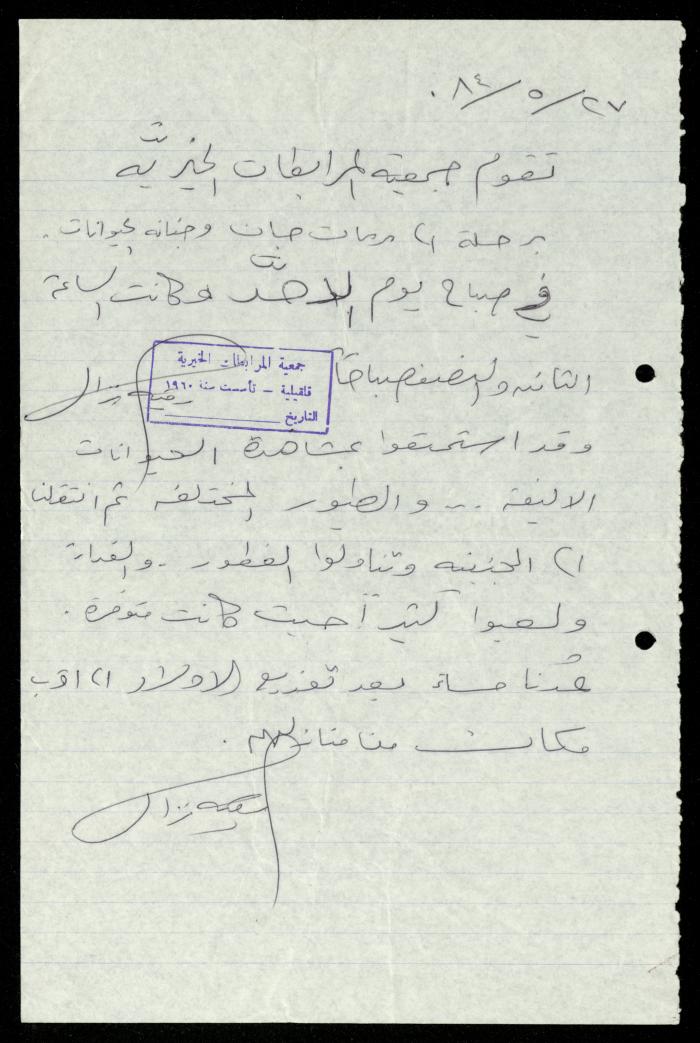 ٨٤/٥/٢٧.
تقوم جمعية المرابطات الخيرية
برحلة الى رمات جان وجنانه الحيوانات.
في صباح يوم الاحد وكانت الساعة
الثامنه والنصف صباحاً
جمعية المرابطات الخيرية
قلقيلية - تأسست سنة ١٩٦٠
التاريخ
وقد استمتعوا بمشاهدة الحيوانات
الاليفة ... والطيور المختلفه ثم انتقلنا
الى الجنينه وتناولوا الفطور . والغداء
ولعبوا كثيراً حيت كانت متوفرة .
عدنا مساء بعد توزيع الاولاد الى اقرب
مكان من منازلهم .
نزال